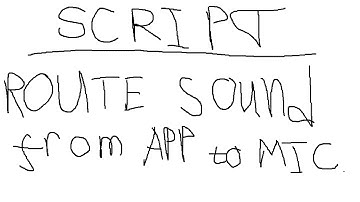 SCRIPT
ROUTE Sound
from APP to MIC.